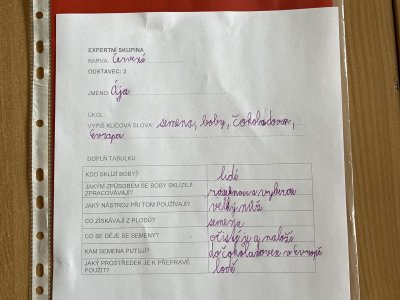 EXPERTNÍ SKUPINA
BARVA: červená
ODSTAVEC: 2
JMÉNO: Ája
ÚKOL:
VYPIŠ KLÍČOVÁ SLOVA: semena, boby, čokoládoven,
Evropa
DOPLŇ TABULKU
KDO SKLÍZÍ BOBY? lidé
JAKÝM ZPŮSOBEM SE BOBY SKLÍZEJÍ
ZPRACOVÁVAJÍ? rozseknou a vyberou
JAKÝ NÁSTROJ PŘI TOM POUŽÍVAJÍ? velký nůž
CO ZÍSKÁVAJÍ Z PLODŮ? semena
CO SE DĚJE SE SEMENY? očistí je a naloží
KAM SEMENA PUTUJÍ? do čokoládoven v Evropě
JAKÝ PROSTŘEDEK JE K PŘEPRAVĚ
POUŽIT? lodě